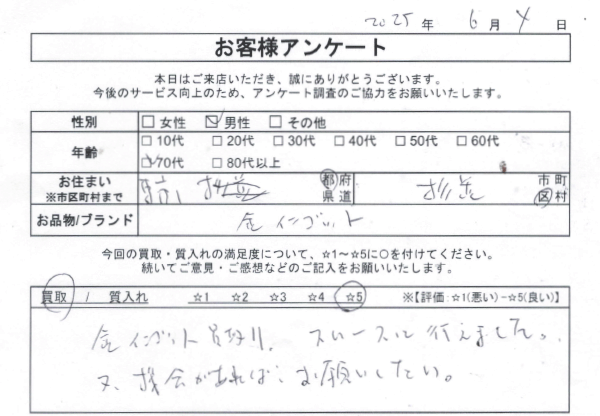 2025 年 6 月 4 日
お客様アンケート
本日はご来店いただき、誠にありがとうございます。
今後のサービス向上のため、アンケート調査のご協力をお願いいたします。
性別 □ 女性 ☑ 男性 □ その他
年齢 □ 10代 □ 20代 □ 30代 □ 40代 □ 50代 □ 60代
☑ 70代 □ 80代以上
お住まい ※市区町村まで 東京 都府県道 杉並 市町区村
お品物/ブランド 金インゴット
今回の買取・質入れの満足度について、☆1～☆5に○を付けてください。
続いてご意見・ご感想などのご記入をお願いいたします。
買取 / 質入れ ☆1 ☆2 ☆3 ☆4 ☆5 ※【評価:☆1(悪い)-☆5(良い)】
金インゴット買取り、スムースに行えました。
又、機会があれば、お願いしたい。